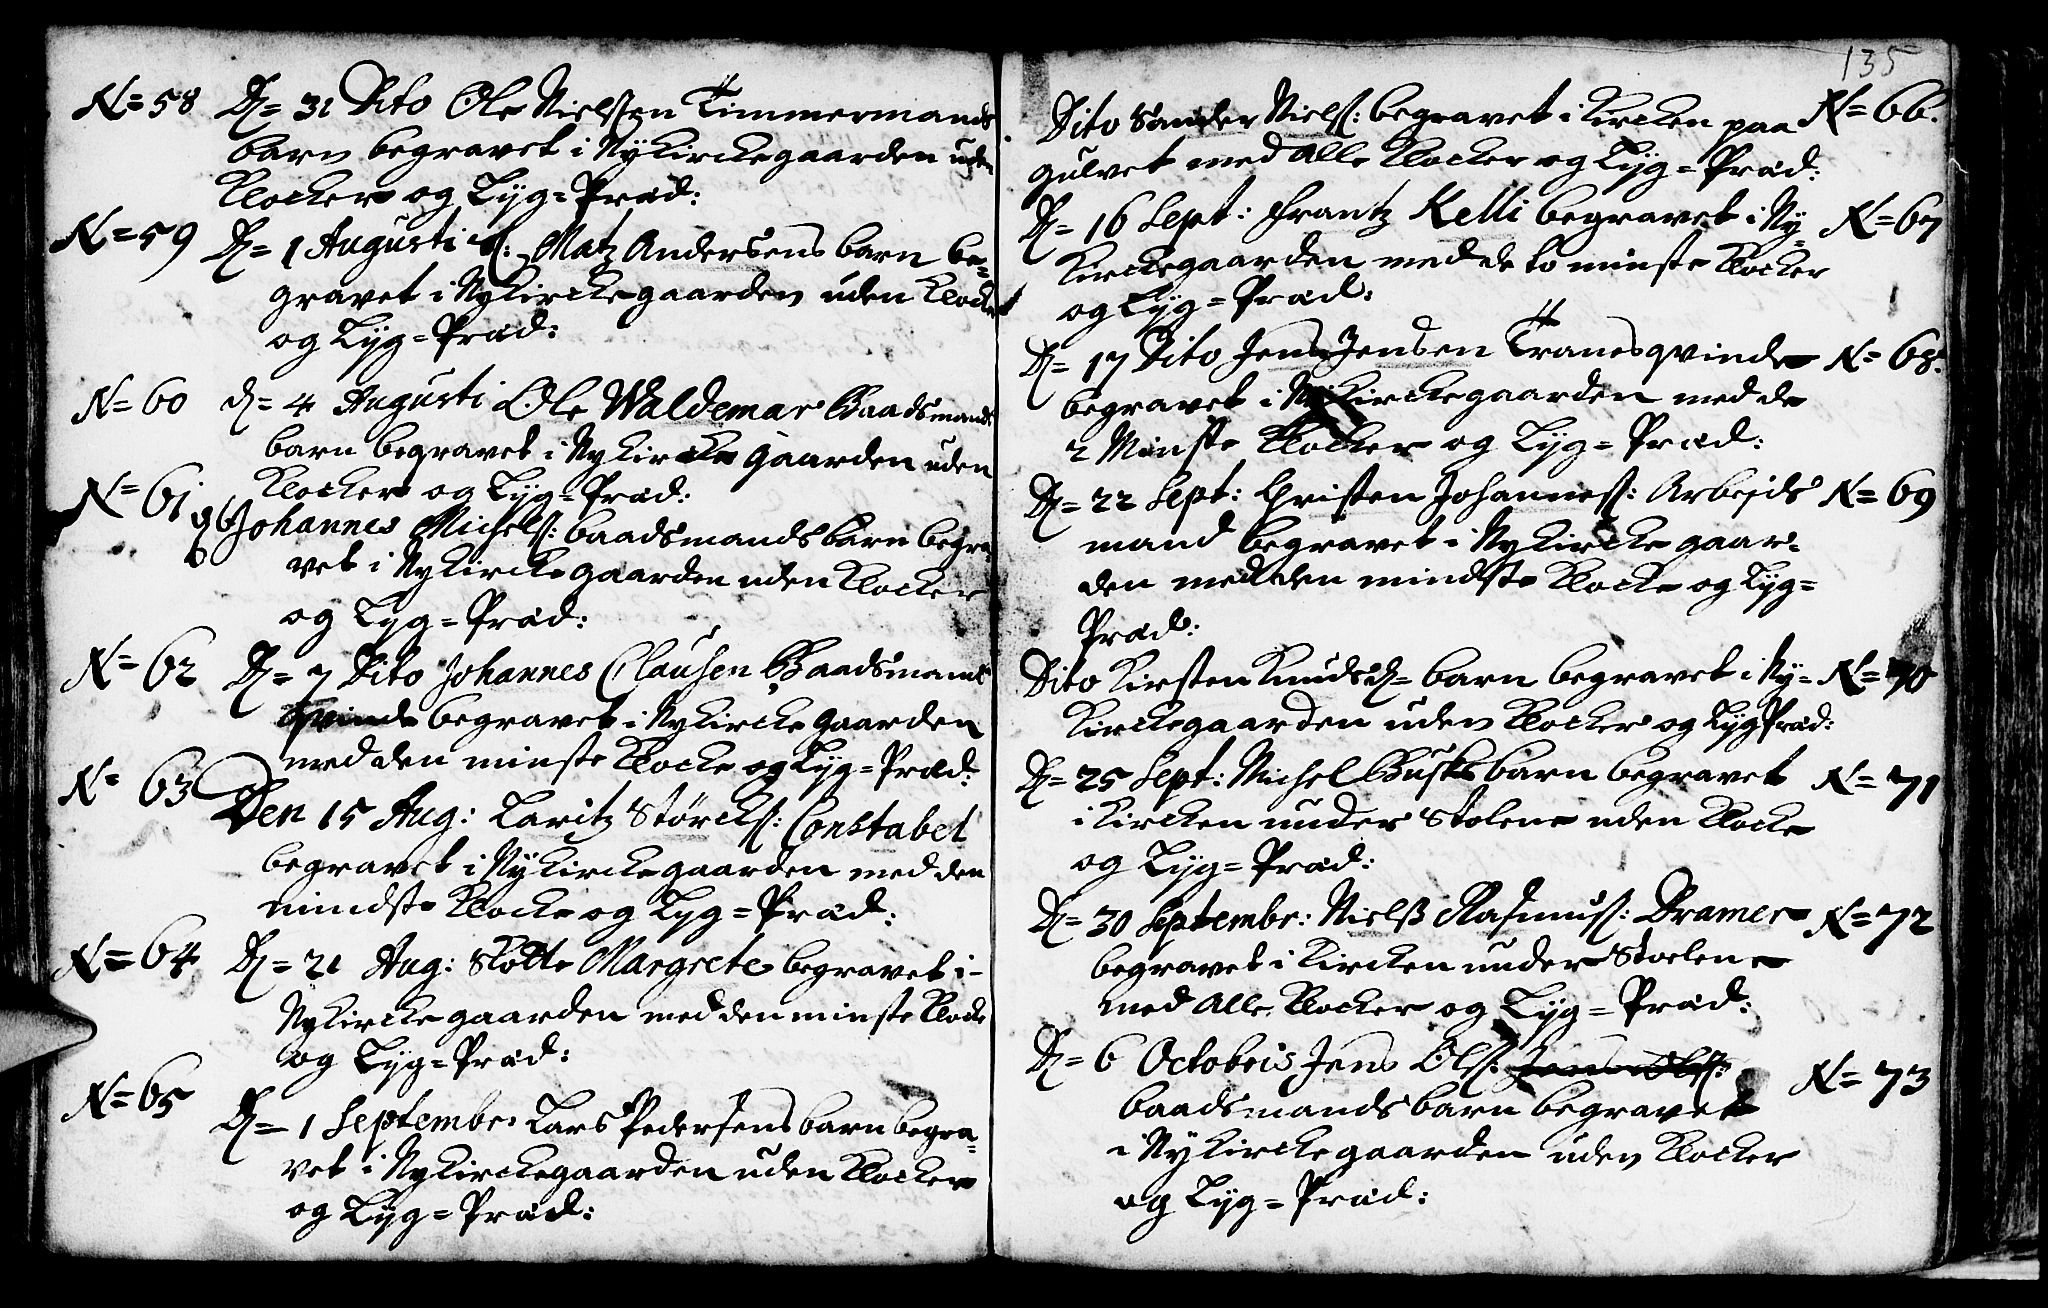 N=58 D= 31 Dito Ole Nielssen Timmermands
barn begravet i Nÿkirckegaarden uden
Klocker og Lyg=Præd:
N=59 D= 1 Augusti Matz Andersens barn be=
gravet i Nykirckegaarden uden Klocker
og Lyg=Præd:
N=60 d= 4 Augusti Ole Waldemar Baadsmands
barn begravet i Nykirckegaarden uden
Klocker og Lyg=Præd:
N=61 Johannes Michels: baadsmands barn begra
vet i Nykirckegaarden uden Klocker
og Lyg=Præd:
N=62 D= 7 Dito Johannes Claussen Baadsmands
qvinde begravet i Nykirckegaarden
med den minste Klocke og Lyg=Præd:
N= 63 Den 15 Aug: Laritz Störcks: Constabel
begravet i Nÿkirckegaarden med den
mindste Klocke og Lyg=Præd:
N=64 D= 21 Aug: Margrete begravet i
Nykirckegaarden med den minste Klocke
og Lyg=Præd:
N=65 D= 1 September Lars Pedersens barn begra=
vet i Nykirckegaarden uden Klocker
og Lÿg=Præd:
135
Dito Sander Niels: begravet i Kircken paa N=66.
gulvet med alle Klocker og Lyg=Præd:
D= 16 Sept: Frantz Kelli begravet i Ny= N=67
Kirckegaarden med de to minste Klocker
og Lyg=Præd:
D= 17 Dito Jens Jensen Tranes qvinde N=68.
begravet i Nykirckegaarden med de
2 Minste Klocker og Lyg=Præd:
D= 22 Sept: Christen Johanness: Arbejds N=69
mand begravet i Nykirckegaar=
den med den mindste Klocke og Lyg=
Præd:
Dito Kirsten Knudsd= barn begravet i Ny= N=70
Kirckegaarden uden Klocker og Lyg Præd:
D= 25 Sept: Michel Busks barn begravet N=71
i Kircken under Stolene uden Klocke
og Lyg=Præd:
D= 30 Septembr: Niels Rasmuss: Dramer N=72
begravet i Kircken under Stoelene
med alle Klocker og Lyg=Præd:
D= 6 Octobris Jens Ols: Jens Ols: N=73
baadsmands barn begravet
i Nykirckegaarden uden Klocker
og Lyg=Præd: